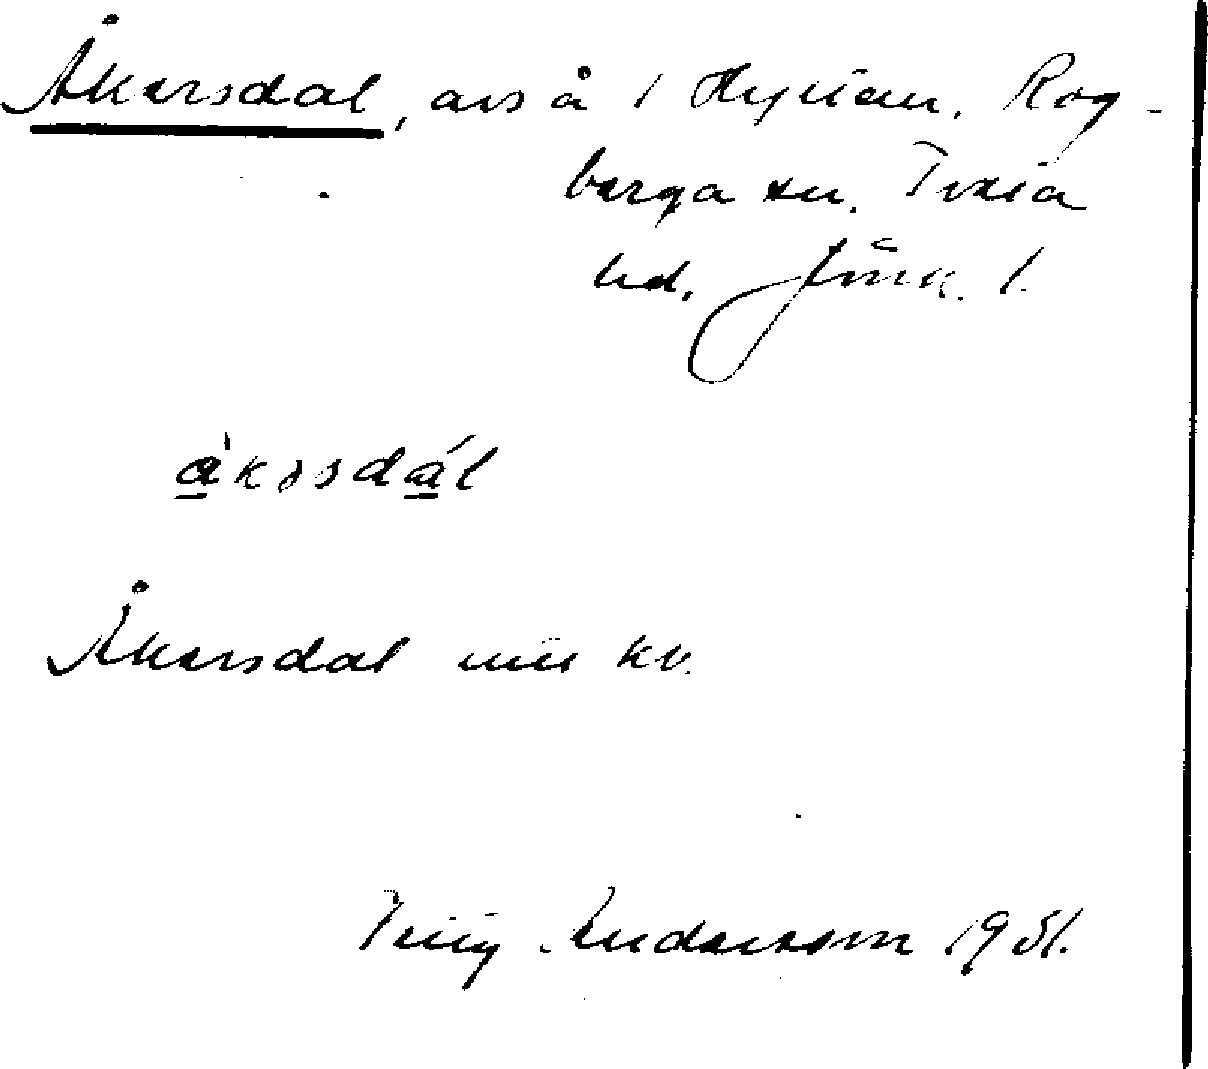 Åkersdal, avs å 1 Hyltan. Rog-
berga sn. Tveta
hd. Jönk. l.
åkərsdál
Åkersdal
kv.
Andersson 1951.